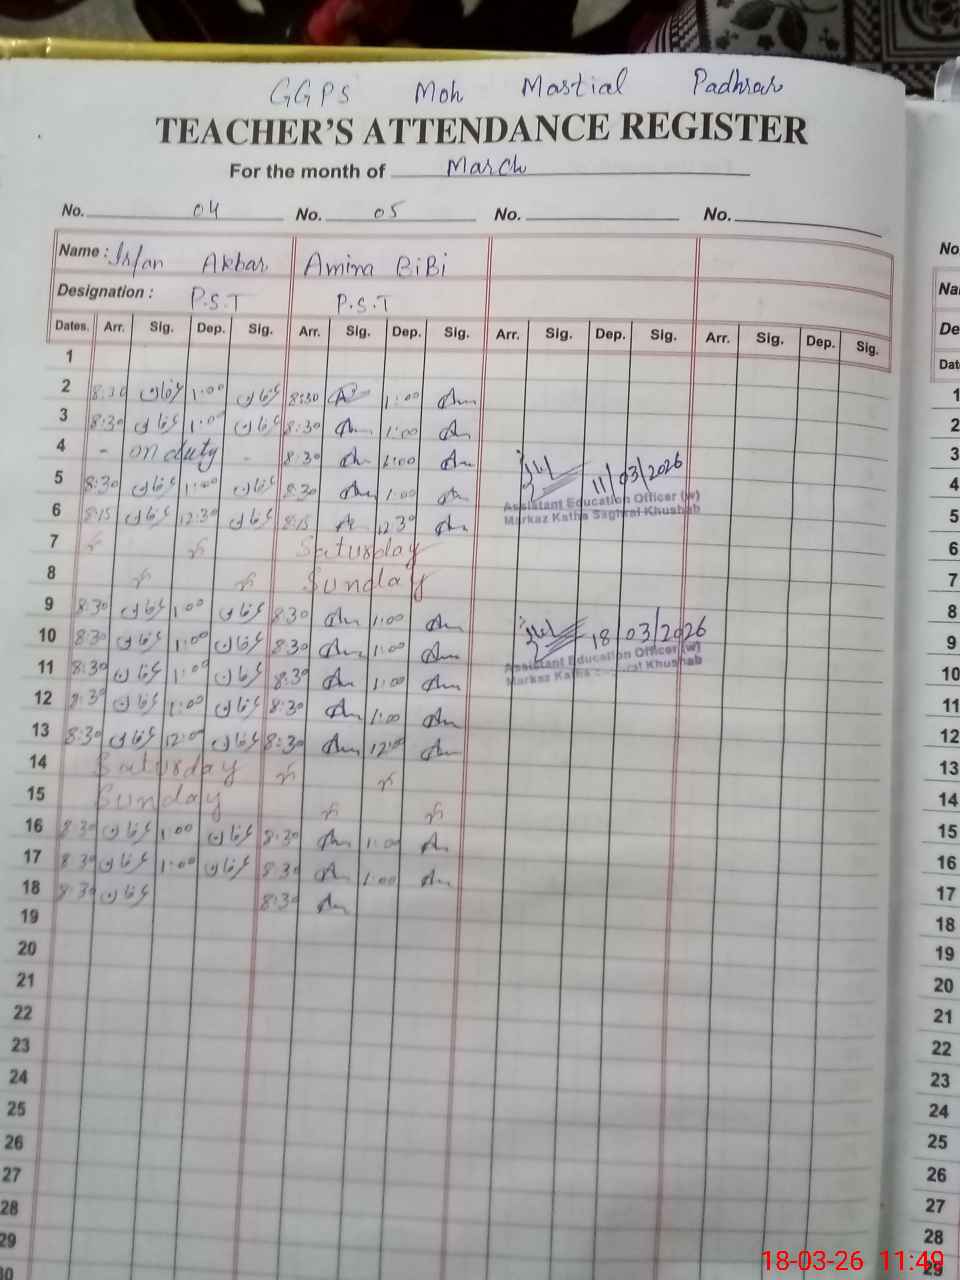 GGPS Moh Mastial Padhrar
TEACHER'S ATTENDANCE REGISTER
For the month of March
No. 04 No. 05 No. No.
Name : Irfan Akbar Amina BiBi
Designation : P.S.T P.S.T
Dates. Arr. Sig. Dep. Sig. Arr. Sig. Dep. Sig. Arr. Sig. Dep. Sig. Arr. Sig. Dep. Sig.
1
2 8:30 1:00 8:30 1:00
3 8:30 1:00 8:30 1:00
4 - on duty - 8:30 1:00
5 8:30 1:00 8:30 1:00
6 8:15 12:30 8:15 12:30
11/03/2026
Assistant Education Officer (w)
Markaz Katha Saghral Khushab
7 Saturday
8 Sunday
9 8:30 1:00 8:30 1:00
10 8:30 1:00 8:30 1:00
18/03/2026
Assistant Education Officer (w)
Markaz Katha Khushab
11 8:30 1:00 8:30 1:00
12 8:30 1:00 8:30 1:00
13 8:30 12:00 8:30 12:00
14 Saturday
15 Sunday
16 8:30 1:00 8:30 1:00
17 8:30 1:00 8:30 1:00
18 8:30 8:30
19
20
21
22
23
24
25
26
27
28
29
30
No
Na
De
Dat
1
2
3
4
5
6
7
8
9
10
11
12
13
14
15
16
17
18
19
20
21
22
23
24
25
26
27
28
29
18-03-26 11:49